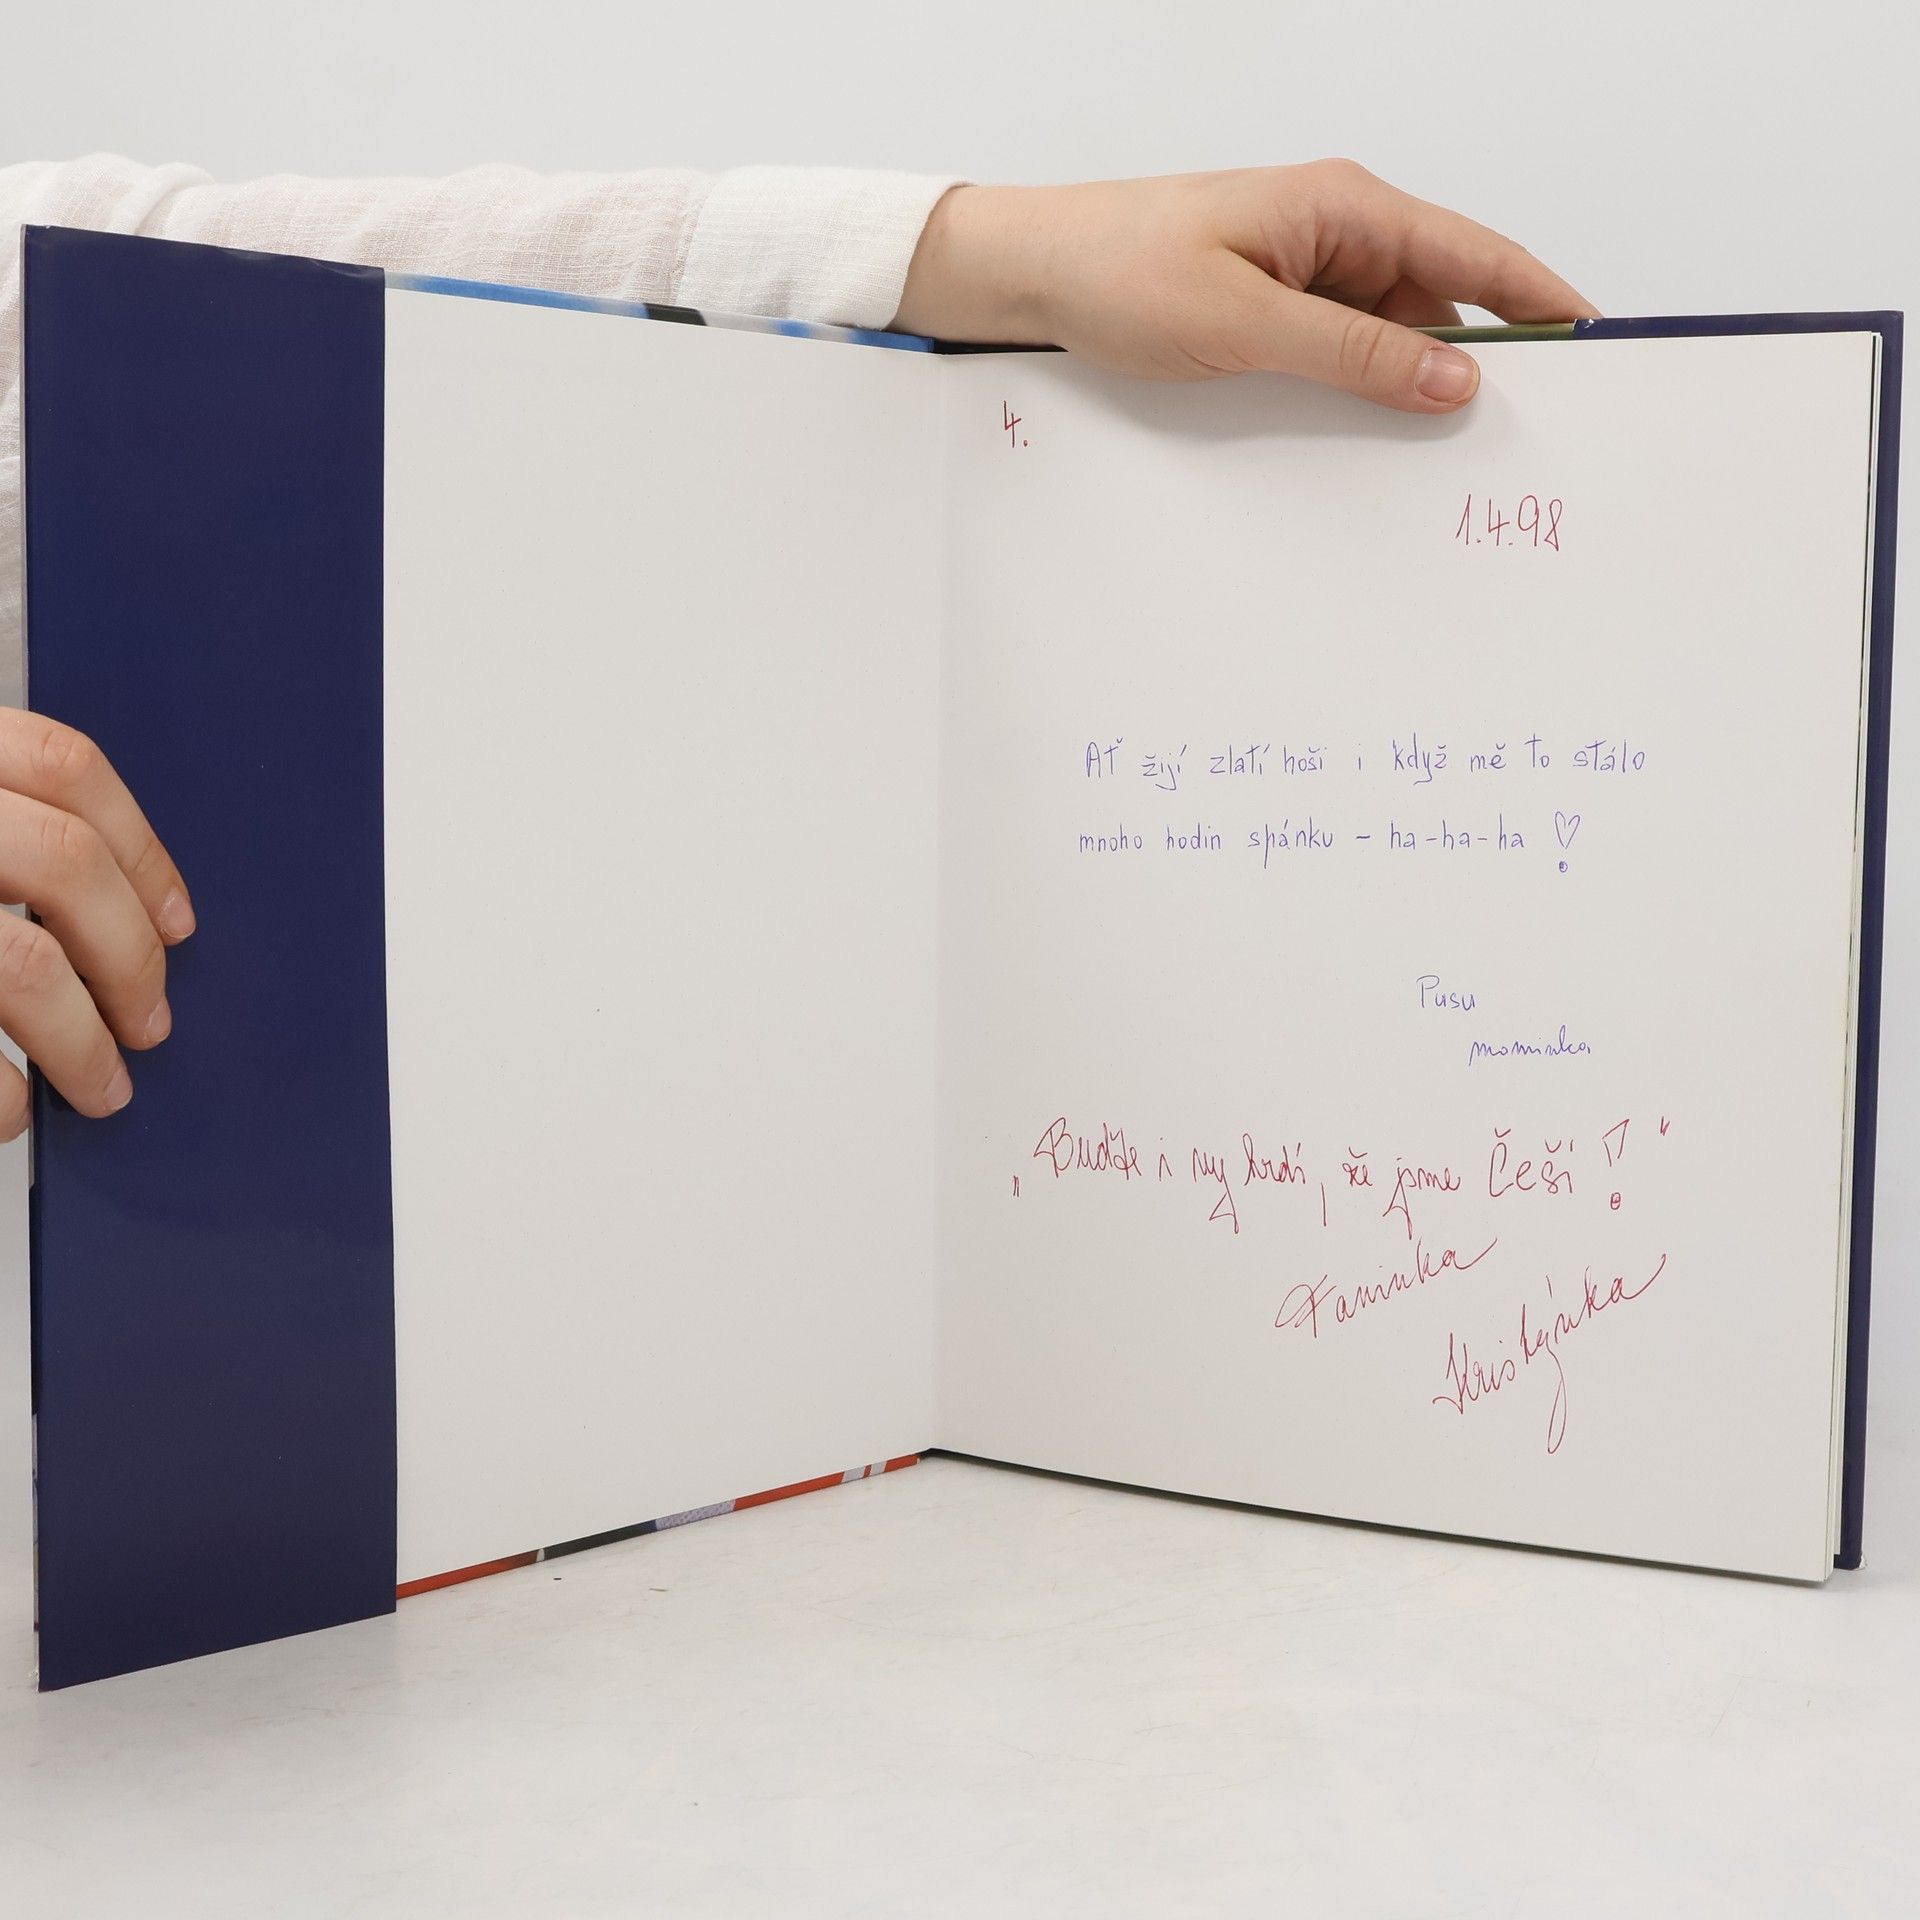 4.
1.4.98
Ať žijí zlatí hoši i když mě to stálo
mnoho hodin spánku – ha-ha-ha
Pusu
mominka
„Buďte i vy hrdí, že jsme Češi!"
Kristýnka